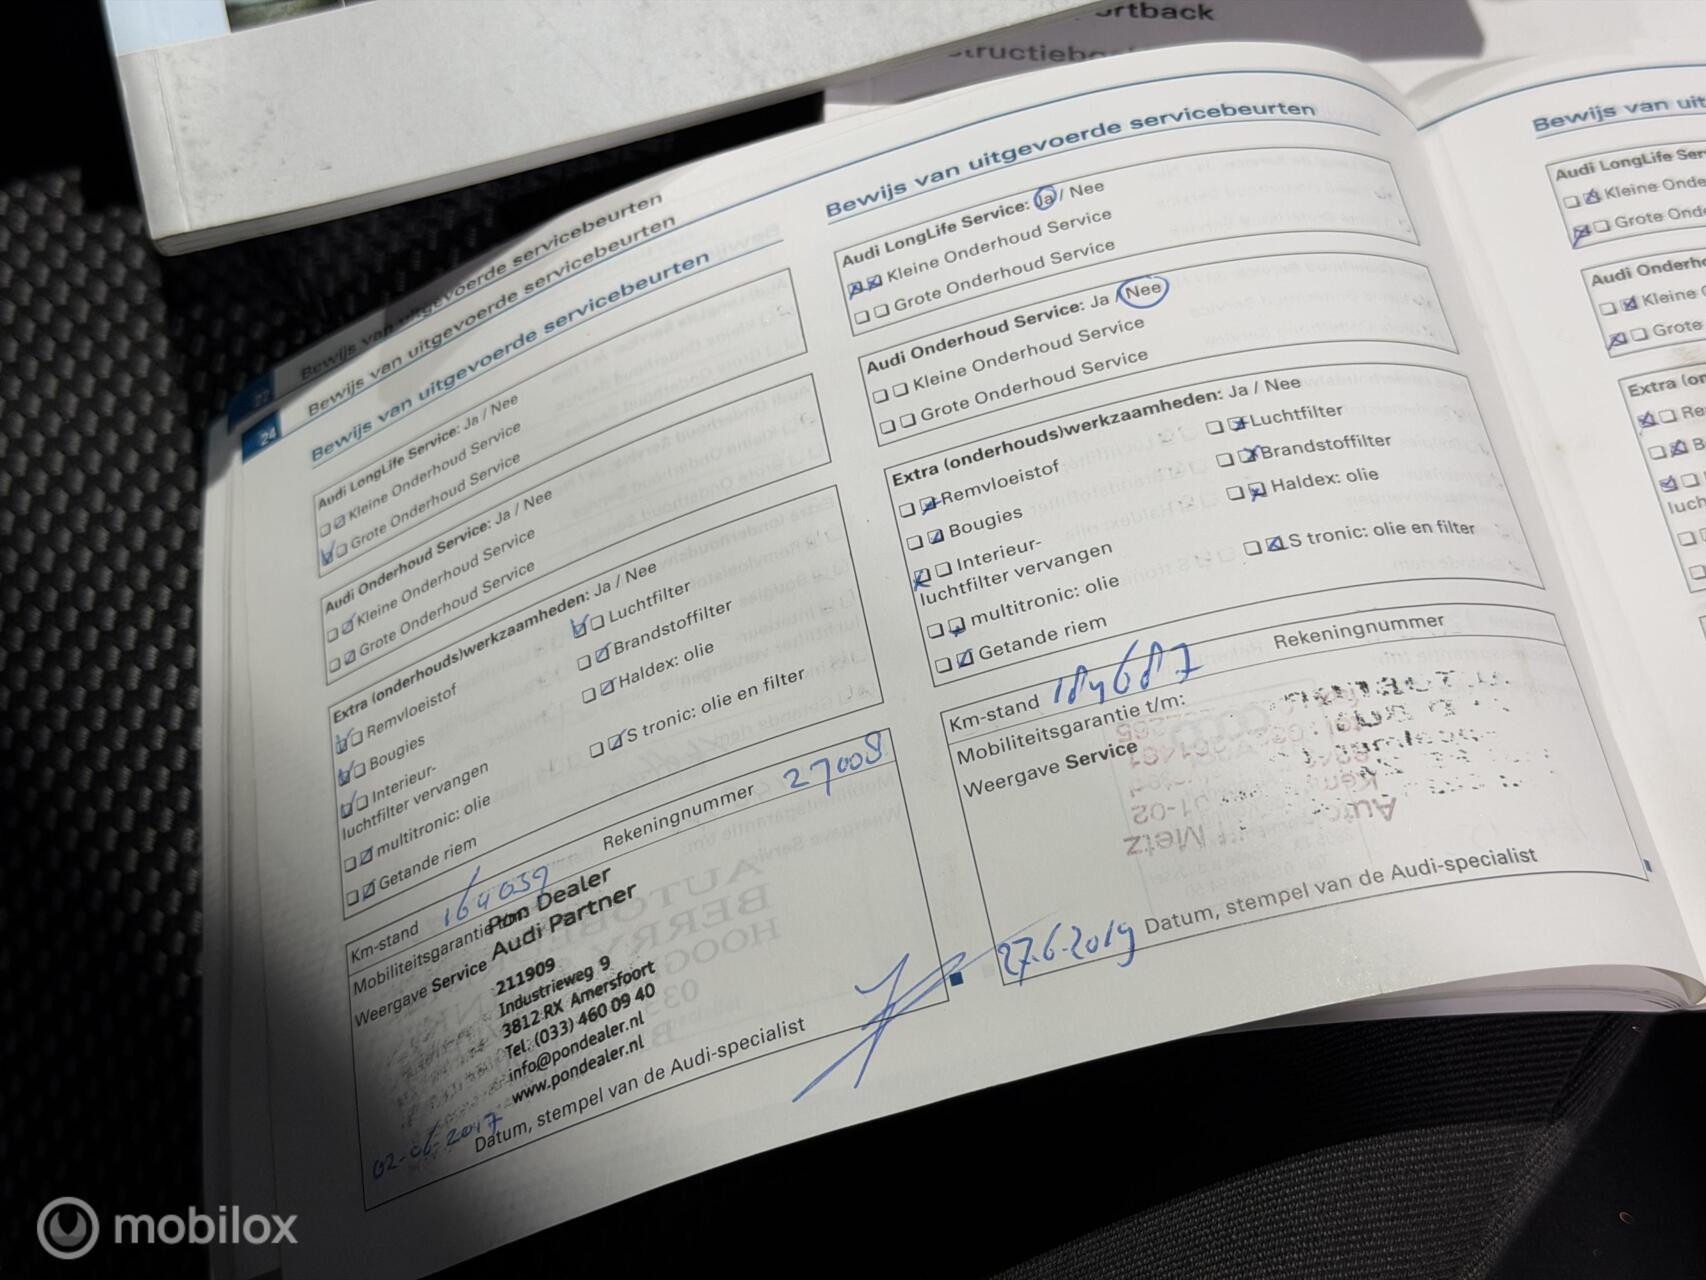 rtback
tructiebo
Bewijs van uitgevoerde servicebeurten
Bewijs van uitgevoerde servicebeurten
24
Bewijs van uitgevoerde servicebeurten
Audi LongLife Service: Ja / Nee
Kleine Onderhoud Service
Grote Onderhoud Service
Audi Onderhoud Service: Ja / Nee
Kleine Onderhoud Service
Grote Onderhoud Service
Extra (onderhouds)werkzaamheden: Ja / Nee
Remvloeistof
Luchtfilter
Bougies
Brandstoffilter
Interieur-
luchtfilter vervangen
Haldex: olie
multitronic: olie
S tronic: olie en filter
Getande riem
Km-stand 164039
Rekeningnummer 27008
Mobiliteitsgarantie
Weergave Service
Pon Dealer
Audi Partner
211909
Industrieweg 9
3812 RX Amersfoort
Tel. (033) 460 09 40
info@pondealer.nl
www.pondealer.nl
02-06-2017
Datum, stempel van de Audi-specialist
Bewijs van uitgevoerde servicebeurten
Audi LongLife Service: Ja / Nee
Kleine Onderhoud Service
Grote Onderhoud Service
Audi Onderhoud Service: Ja / Nee
Kleine Onderhoud Service
Grote Onderhoud Service
Extra (onderhouds)werkzaamheden: Ja / Nee
Remvloeistof
Luchtfilter
Bougies
Brandstoffilter
Interieur-
luchtfilter vervangen
Haldex: olie
multitronic: olie
S tronic: olie en filter
Getande riem
Km-stand 184687
Rekeningnummer
Mobiliteitsgarantie t/m:
Weergave Service
27.6-2019 Datum, stempel van de Audi-specialist
Bewijs van uit
Audi LongLife Ser
Kleine Onde
Grote Ond
Audi Onderho
Kleine
Grote
Extra (on
Re
B
luch
mobilox